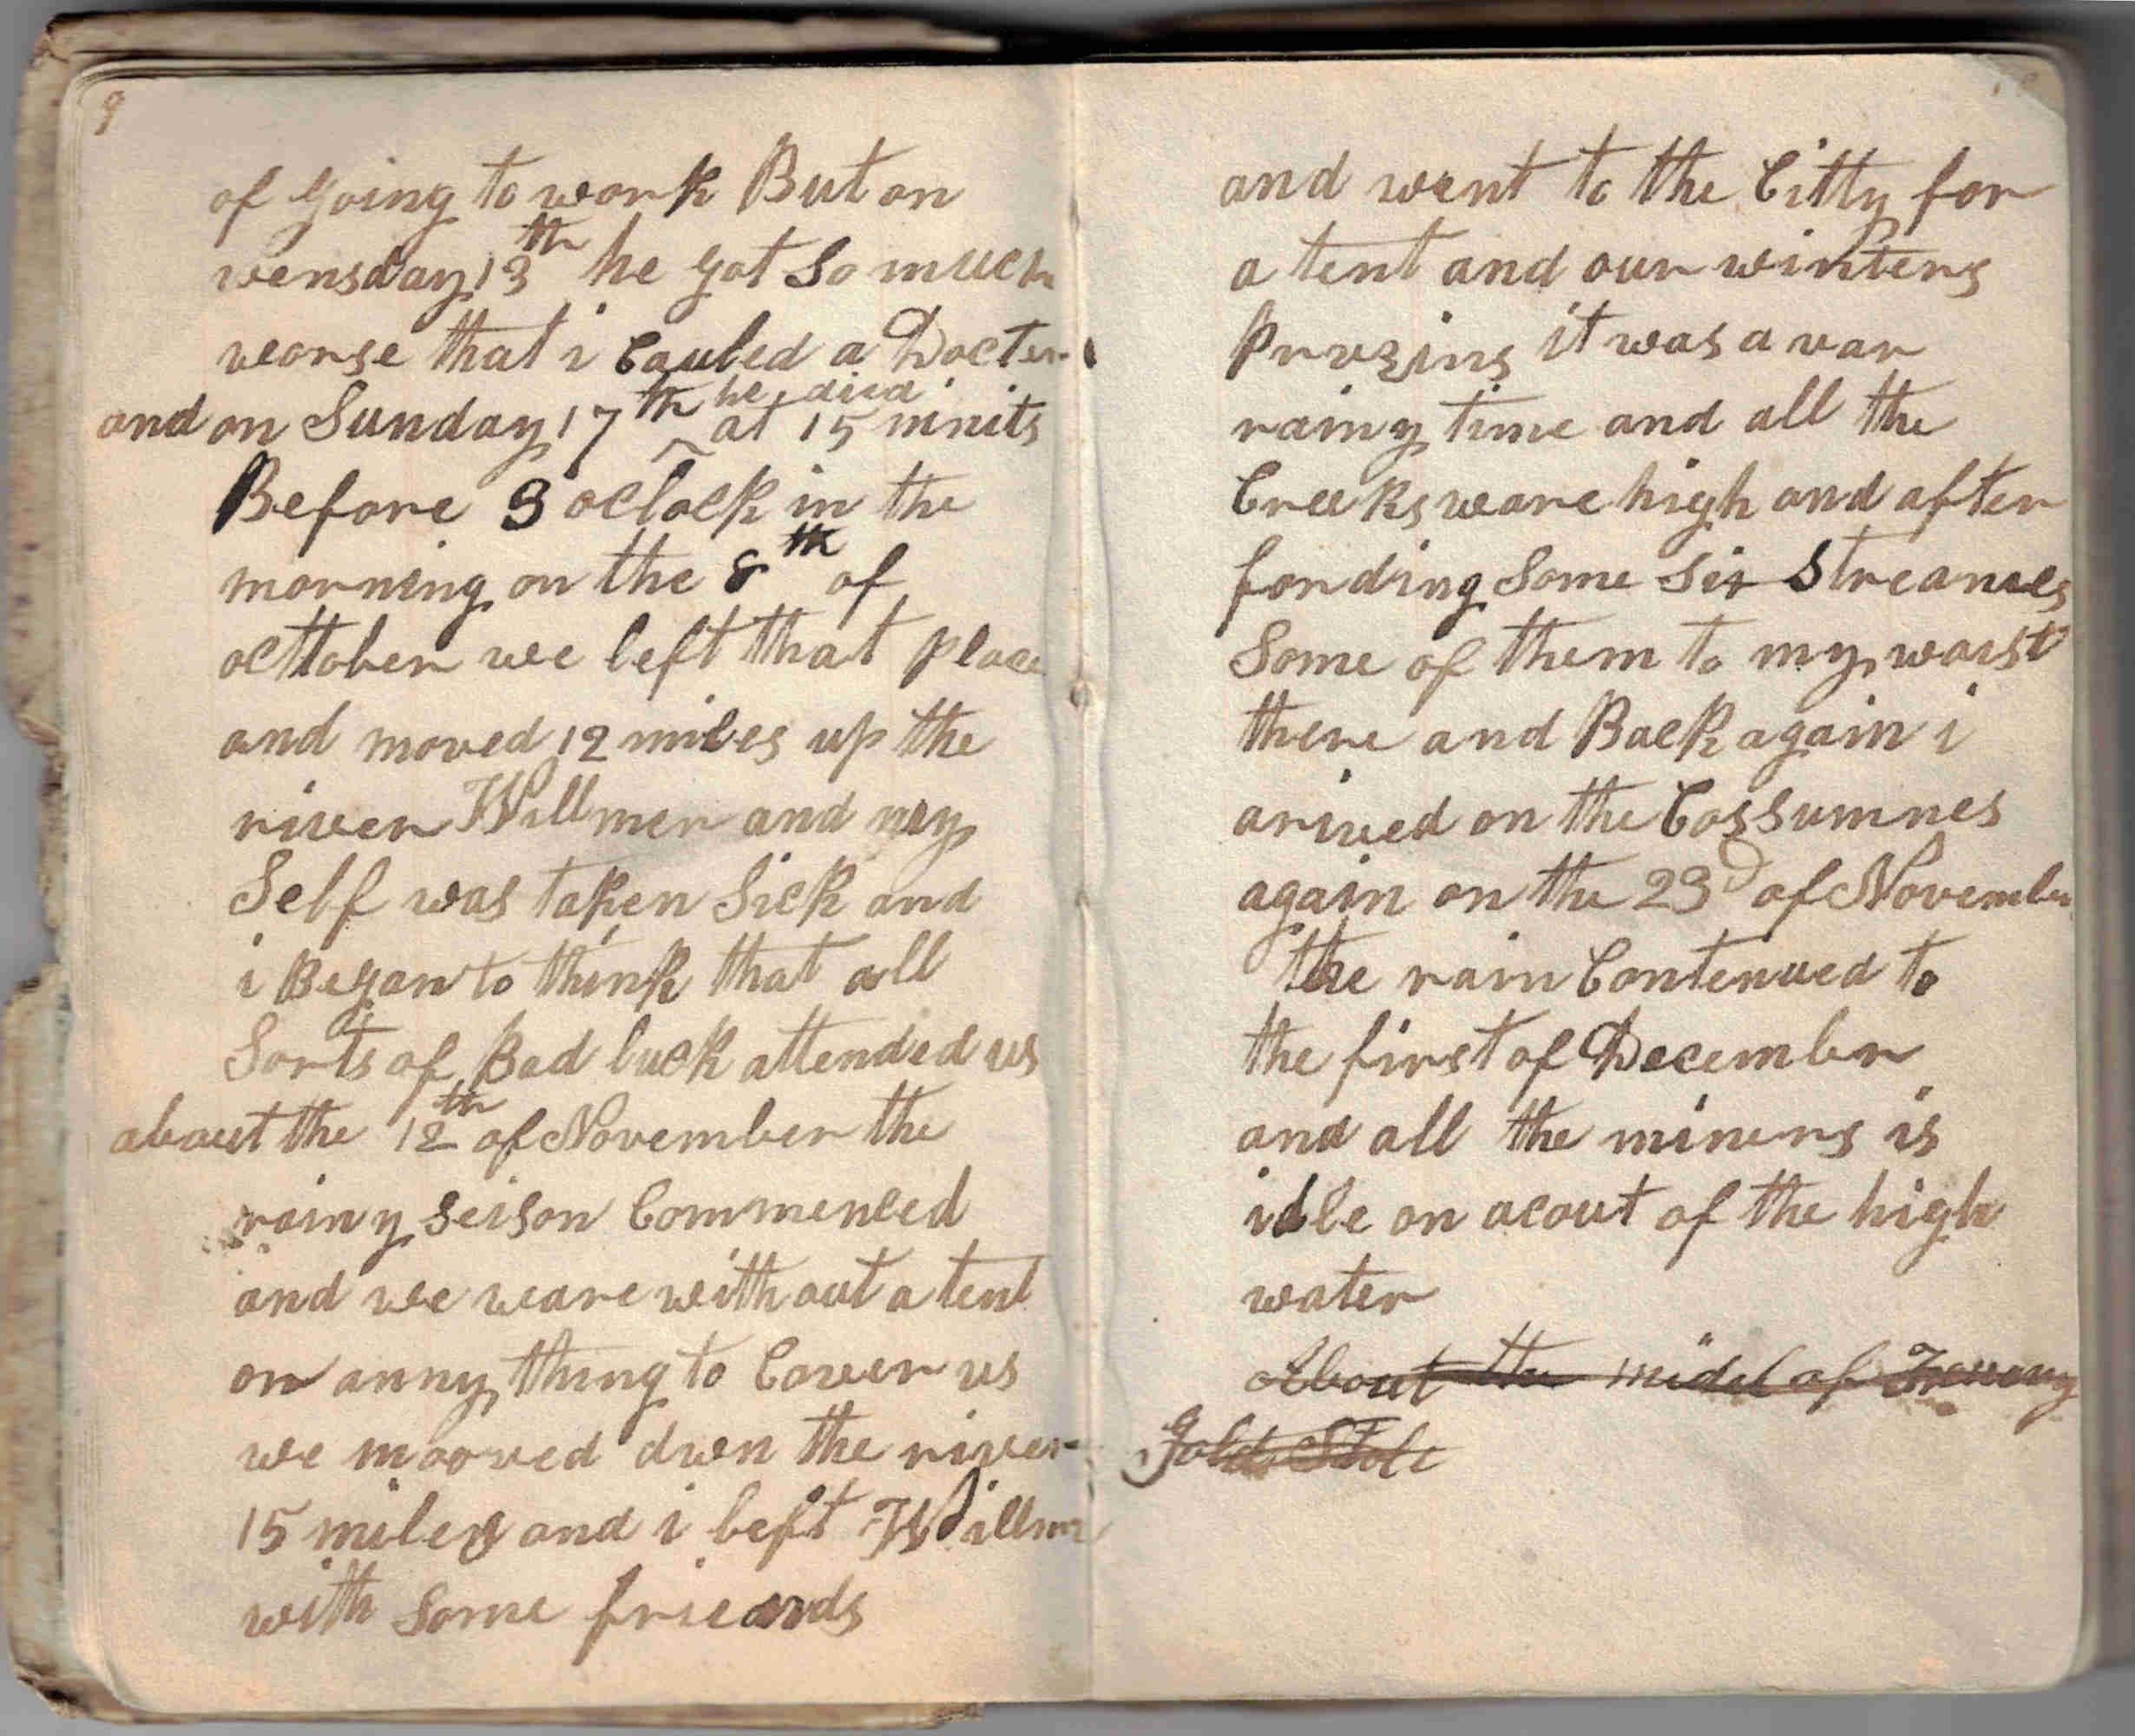 9
of going to work But on
wensday 13th he got So much
worse that i Cauled a Docter
and on Sunday 17th he died at 15 minits
Before 3 oclock in the
morning on the 8th of
octtober we left that place
and moved 12 miles up the
river Willmer and my
Self was taken Sick and
i Began to think that all
Sorts of Bad luck attended us
about the 12th of November the
rainy seison Commenced
and we weare without a tent
or anny thing to Cover us
we mooved dwn the river
15 miles and i left Willmer
with Some friends
and went to the Citty for
a tent and our winters
Provzins it was a var
rainy time and all the
Creeks weare high and after
fording Some Six Streames
Some of them to my waist
there and Back again i
arived on the Cossumnes
again on the 23d of November
the rain Contenued to
the first of December
and all the miners is
idle on acout of the high
water
About the midel of
Gold